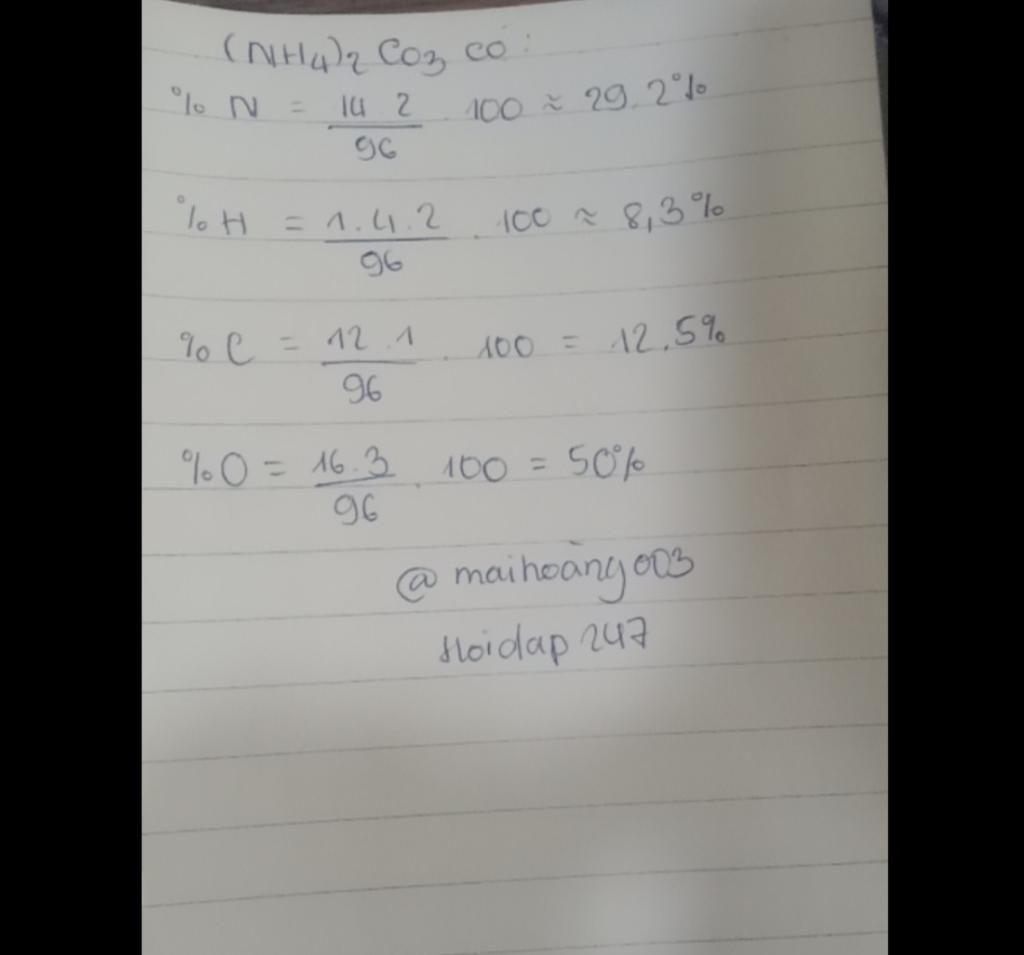 (NH4)2 Co3 có:
% N = 14.2/96 . 100 ≈ 29.2%
% H = 1.4.2/96 . 100 ≈ 8,3%
% C = 12.1/96 . 100 = 12.5%
% O = 16.3/96 . 100 = 50%
@maihoàng003
Hoidap247